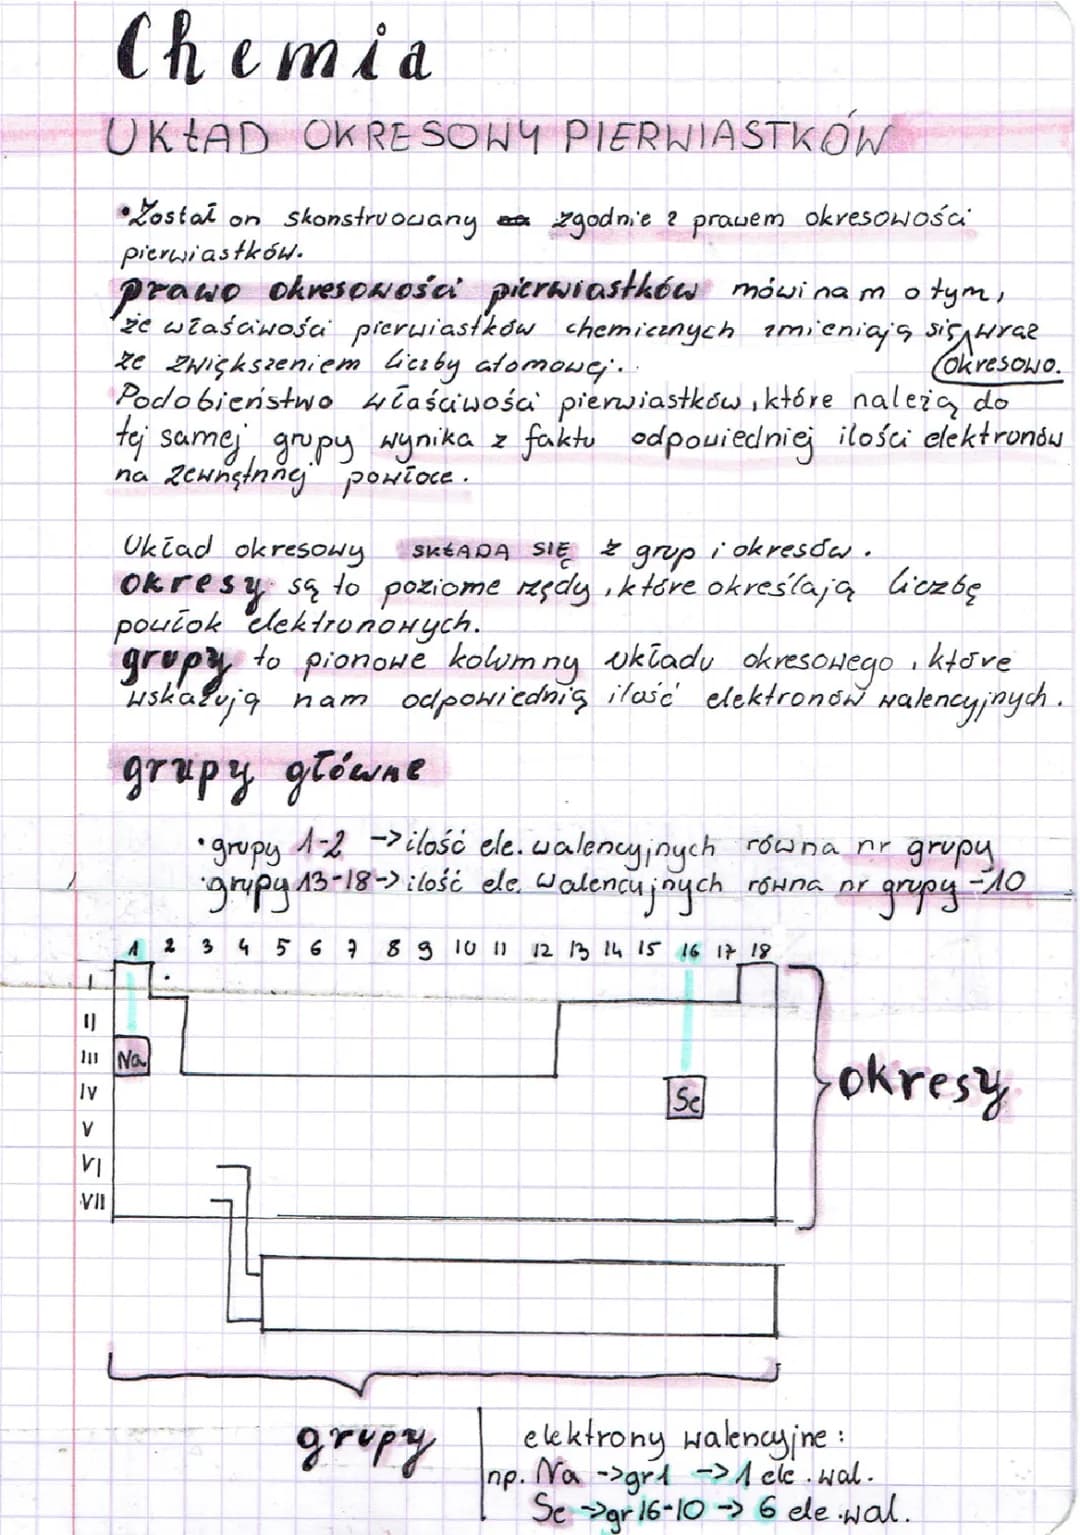 Chemia
UKŁAD OKRESOWY PIERWIASTKÓW
•Został on skonstruowany zgodnie z prawem okresowości
pierwiastków.
prawo okresowości pierwiastków mówi nam o tym,
że właściwości pierwiastków chemicznych zmieniają się wraz
ze zwiększeniem liczby atomowej.
okresowo.
Podobieństwo właściwości pierwiastków, które należą do
tej samej grupy wynika z faktu odpowiedniej ilości elektronów
na zewnętrznej powłoce.
Układ okresowy SKŁADA SIĘ z grup i okresów.
okresy są to poziome rzędy, które określają liczbę
powłok elektronowych.
grupy to pionowe kolumny układu okresowego, które
wskazują nam odpowiednią ilość elektronów walencyjnych.
grupy główne
•grupy 1-2 -> ilość ele. walencyjnych równa nr grupy
•grupy 13-18-> ilość ele. walencyjnych równa nr grupy -10
1 2 3 4 5 6 7 8 9 10 11 12 13 14 15 16 17 18
I
II
III Na
IV Se
V
VI
VII
okresy
grupy
elektrony walencyjne:
np. Na ->gr1 -> 1 ele. wal.
Se ->gr16-10 -> 6 ele.wal.